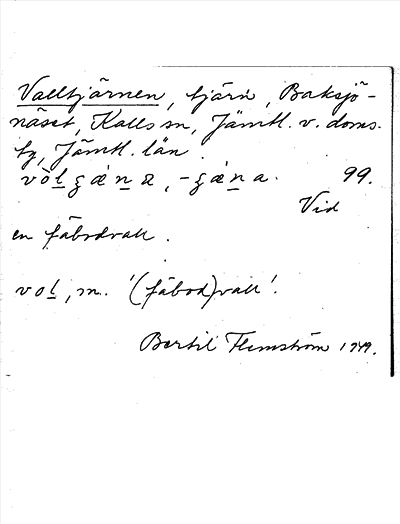 Valltjärnen, tjärn, Baksjö-
näset, Kalls sn, Jämtl. v. doms.
by, Jämtl. län.
99.
Vid
en fäbodvall.
vol, m. '(fäbod)vall'.
Bertil Flemström 1949.